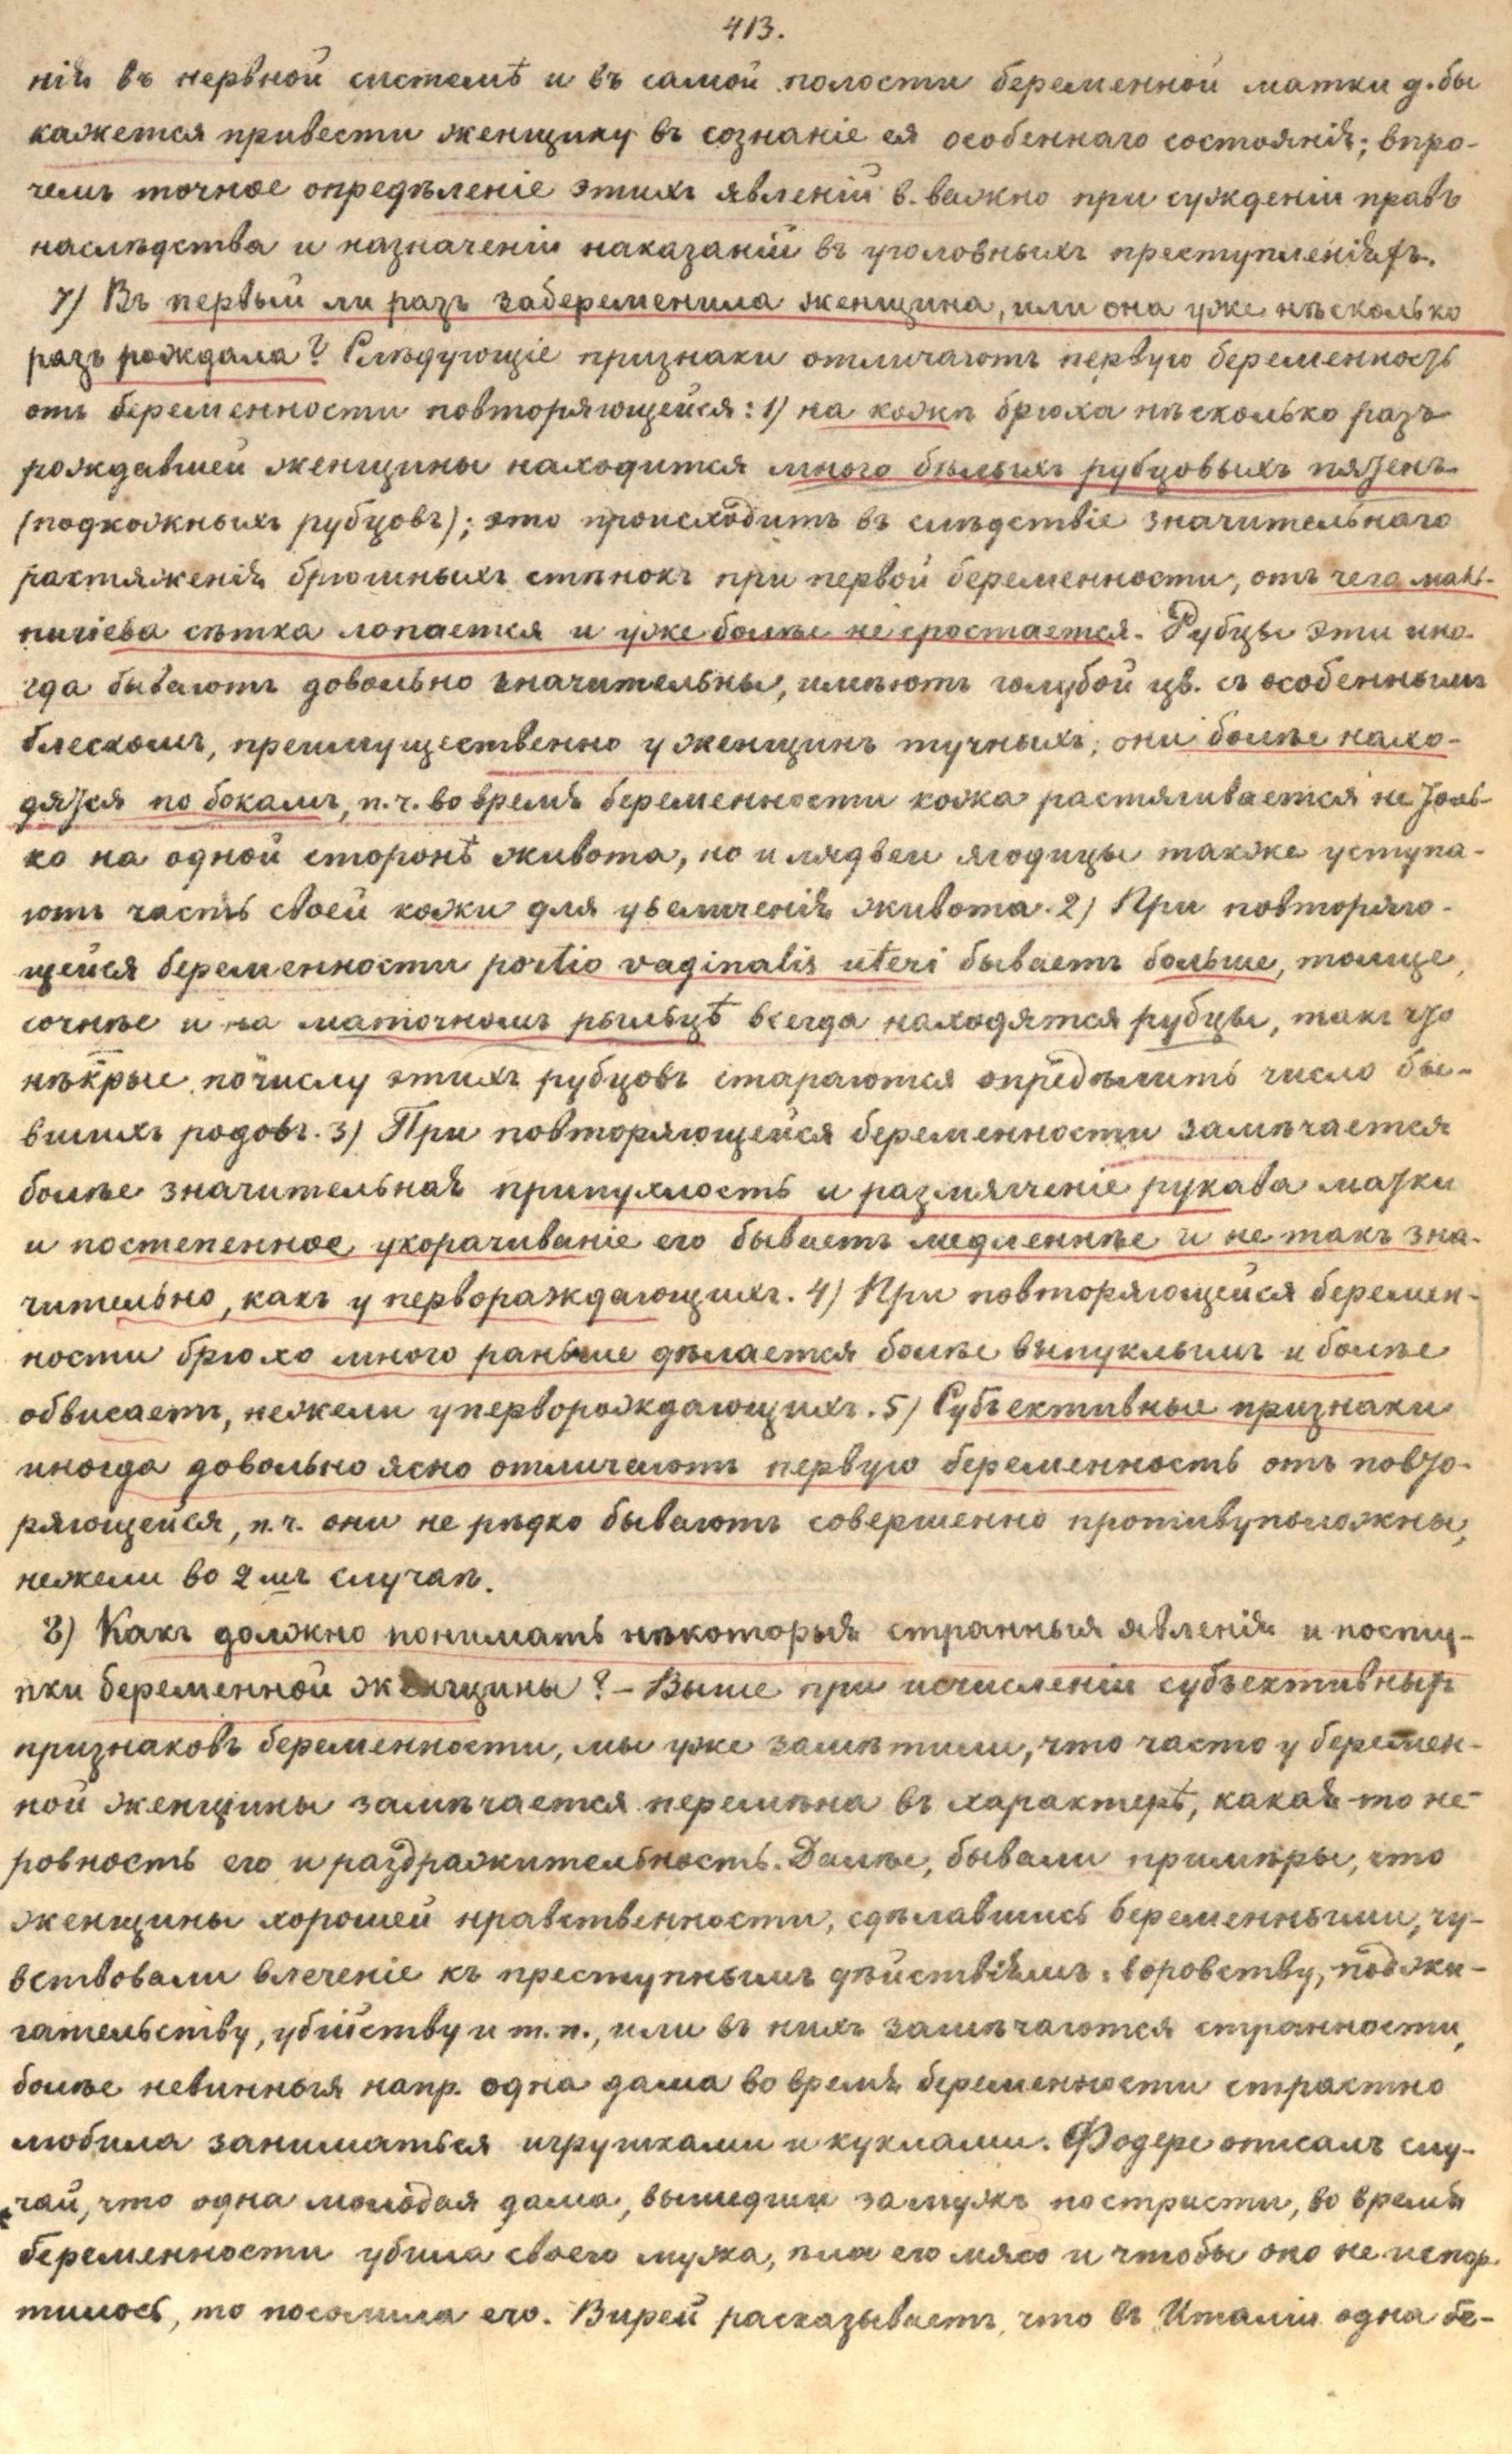 413.
нія въ нервной системѣ и въ самой полости беременной матки д. бы
кажется привести женщину въ сознаніе ея особеннаго состоянія; впро-
чемъ точное опредѣленіе этихъ явленій в. важно при сужденіи правъ
наслѣдства и назначеніи наказаній въ уголовныхъ преступленіяхъ.
7) Въ первый ли разъ забеременила женщина, или она уже нѣсколько
разъ рождала? Слѣдующіе признаки отличаютъ первую беременность
отъ беременности повторяющейся: 1) на кожѣ брюха нѣсколько разъ
рождавшей женщины находится много бѣлыхъ рубцовыхъ пятенъ
(подкожныхъ рубцовъ); это происходитъ въ слѣдствіе значительнаго
растяженія брюшныхъ стѣнокъ при первой беременности, отъ чего маль-
пигіева сѣтка лопается и уже болѣе не сростается. Рубцы эти ино-
гда бываютъ довольно значительны, имѣютъ голубой цв. съ особеннымъ
блескомъ, преимущественно у женщинъ тучныхъ; они болѣе нахо-
дятся по бокамъ, п. ч. во время беременности кожа растягивается не толь-
ко на одной сторонѣ живота, но и лядвеи ягодицы также уступа-
ютъ часть своей кожи для увеличенія живота. 2) При повторяю-
щейся беременности portio vaginalis uteri бываетъ больше, толще,
сочнѣе и на маточномъ рыльцѣ всегда находятся рубцы, такъ что
нѣкрые по числу этихъ рубцовъ стараются опредѣлить число бы-
вшихъ родовъ. 3) При повторяющейся беременности замѣчается
болѣе значительная припухлость и размягченіе рукава матки
и постепенное укорачиваніе его бываетъ медленнѣе и не такъ зна-
чительно, какъ у перворождающихъ. 4) При повторяющейся беремен-
ности брюхо много раньше дѣлается болѣе выпуклымъ и болѣе
обвисаетъ, нежели у перворождающихъ. 5) Субъективные признаки
иногда довольно ясно отличаютъ первую беременность отъ повто-
ряющейся, п. ч. они не рѣдко бываютъ совершенно противуположны,
нежели во 2мъ случаѣ.
8) Какъ должно понимать нѣкоторыя странныя явленія и посту-
пки беременной женщины? – Выше при исчисленіи субъективныхъ
признаковъ беременности, мы уже замѣтили, что часто у беремен-
ной женщины замѣчается перемѣна въ характерѣ, какая-то не-
ровность его и раздражительность. Далѣе, бывали примѣры, что
женщины хорошей нравственности, сдѣлавшись беременными, чу-
вствовали влеченіе къ преступнымъ дѣйствіямъ: воровству, поджи-
гательству, убійству и т. п., или въ нихъ замѣчаются странности,
болѣе невинныя напр. одна дама во время беременности страстно
любила заниматься игрушками и куклами. Фодере описалъ слу-
чай, что одна молодая дама, вышедши замужъ по страсти, во время
беременности убила своего мужа, ѣла его мясо и чтобы оно не испор-
тилось, то посолила его. Вирей расказываетъ, что въ Италіи одна бе-